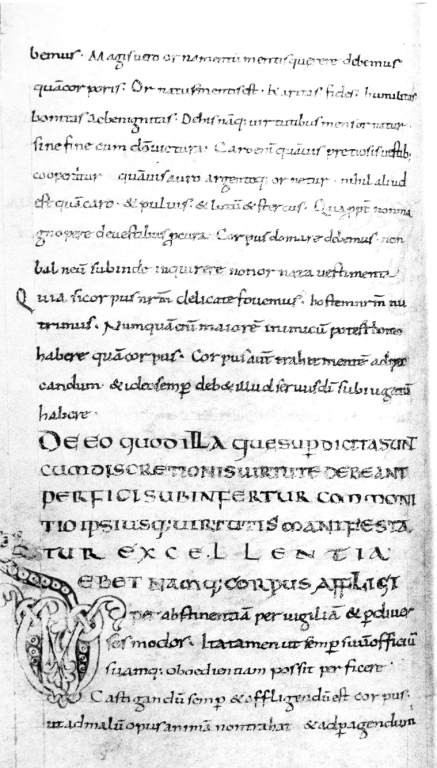 bemus. Magis uero ornamentū mentis querere debemus
quā corporis. Ornatus mentis est. Karitas fides. humilitas
bonitas ac benignitas. De his nāq; uirtutibus mens ornatur.
sine fine cum dō uictura. Caro enī quāuis pretiosis uestib;
cooperitur quāuis auro argentoq; ornetur. nihil aliud
est quā caro. & puluis. & lutū & stercus.
gnopere de uestibus cura. Corpus domare debemus. non
inquirere non ornata uestimenta
Quia si corpus nr̄m delicate fouemus. hostem nr̄m nu
trimus. Numquā enī maiorē inimicū potest homo
habere quā corpus. Corpus aūt trahit mentē ad pec
candum. & ideo semp deb& illud seruus dī subiugatū
habere.
DE EO QUOD ILLA QUE SUP DICTA SUNT
CUM DISCRETIONIS UIRTUTE DEBEANT
PERFICI SUBINFERTUR COMMONI
TIO IPSIUSQ; UIRTUTIS MANIFESTA
TUR EXCELLENTIA
DEBET NAMQ; CORPUS AFFLIGI
per abstinentiā per uigiliā & p diuer
sos modos. Ita tamen ut semp suū officiū
suamq; oboedientiam possit perficere
Castigandū semp & affligendū est corpus.
ut ad malū opus animā non trahat & ad pagendum